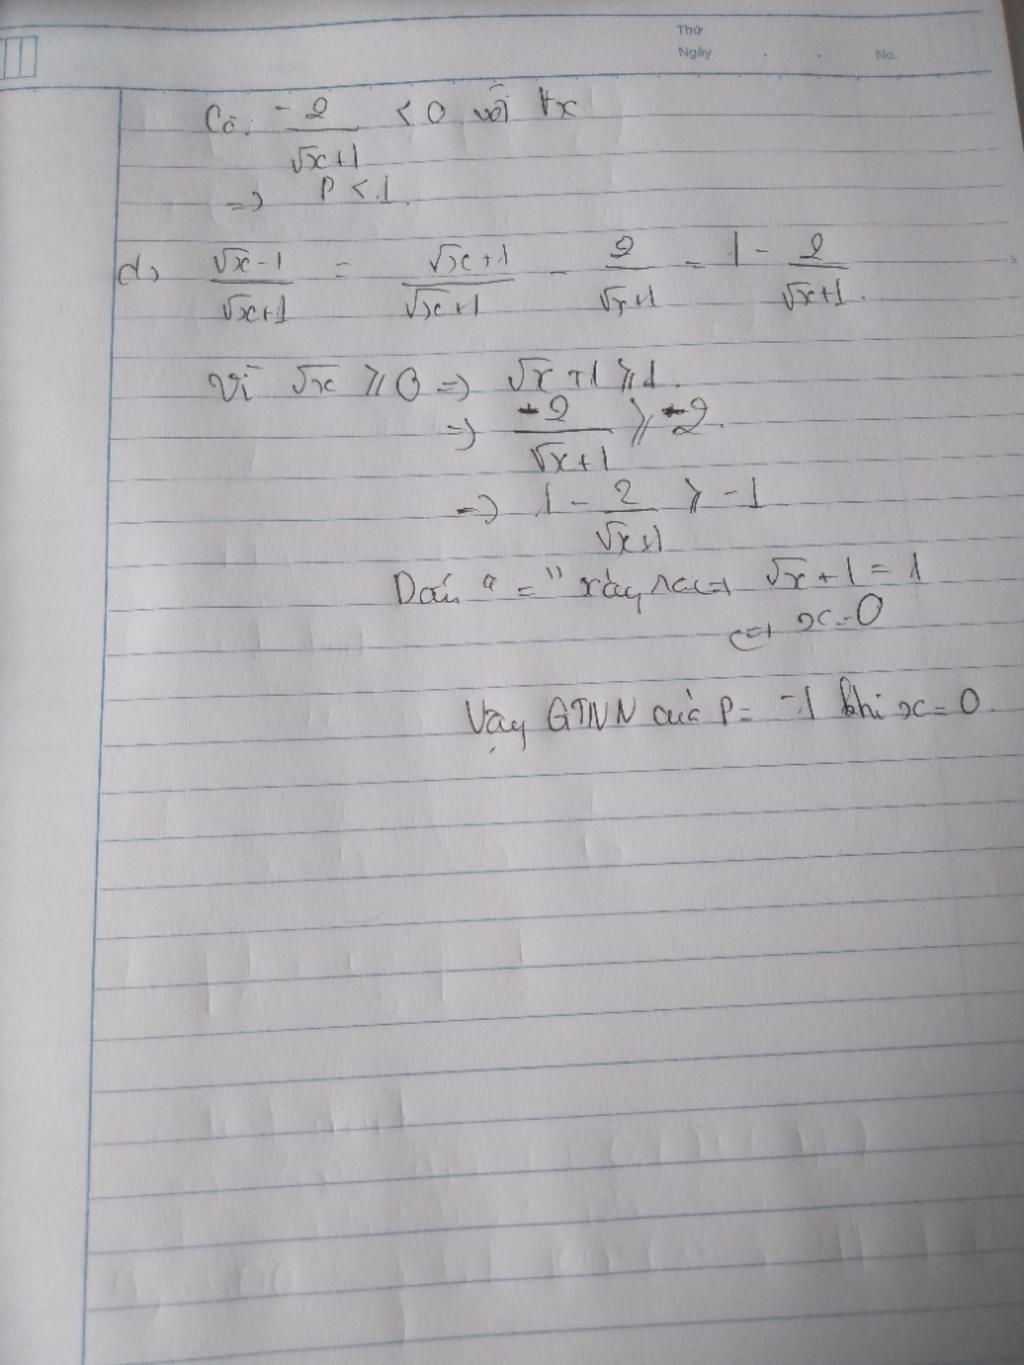 Thứ
Ngày . . No.
Có: -2/(√x+1) < 0 với ∀x
=> P < 1.
d, (√x-1)/(√x+1) = (√x+1)/(√x+1) - 2/(√x+1) = 1 - 2/(√x+1).
Vì √x ⩾ 0 => √x+1 ⩾ 1.
=> -2/(√x+1) ⩾ -2.
=> 1 - 2/(√x+1) ⩾ -1
Dấu "=" xảy ra <=> √x+1 = 1
<=> x=0
Vậy GTNN của P = -1 khi x=0.